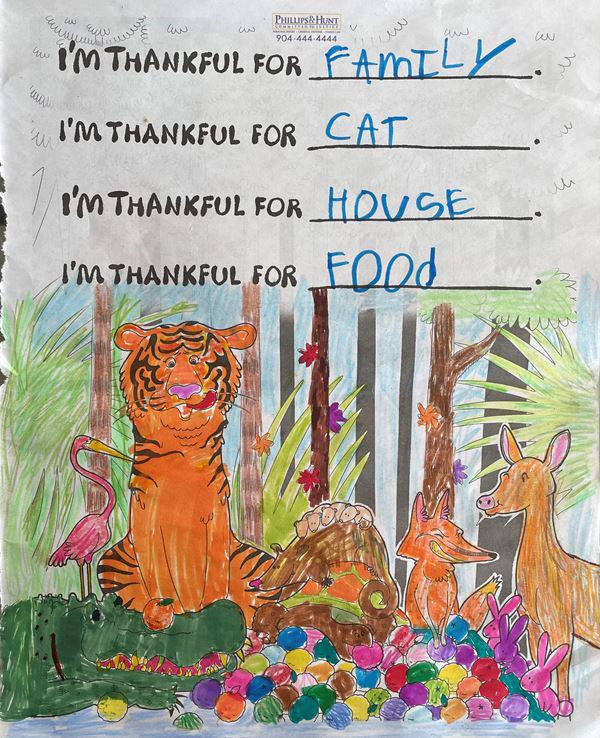 PHILLIPS & HUNT
COMMITTED TO JUSTICE
904-444-4444
I'M THANKFUL FOR FAMILY.
I'M THANKFUL FOR CAT.
I'M THANKFUL FOR HOUSE.
I'M THANKFUL FOR FOOd.